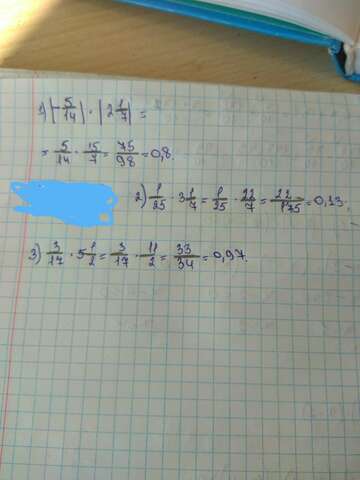 1) |-5/14| · |2 1/7| =
= 5/14 · 15/7 = 75/98 = 0,8
2) 1/25 · 3 1/7 = 1/25 · 22/7 = 22/175 = 0,13.
3) 3/17 · 5 1/2 = 3/17 · 11/2 = 33/34 = 0,97.